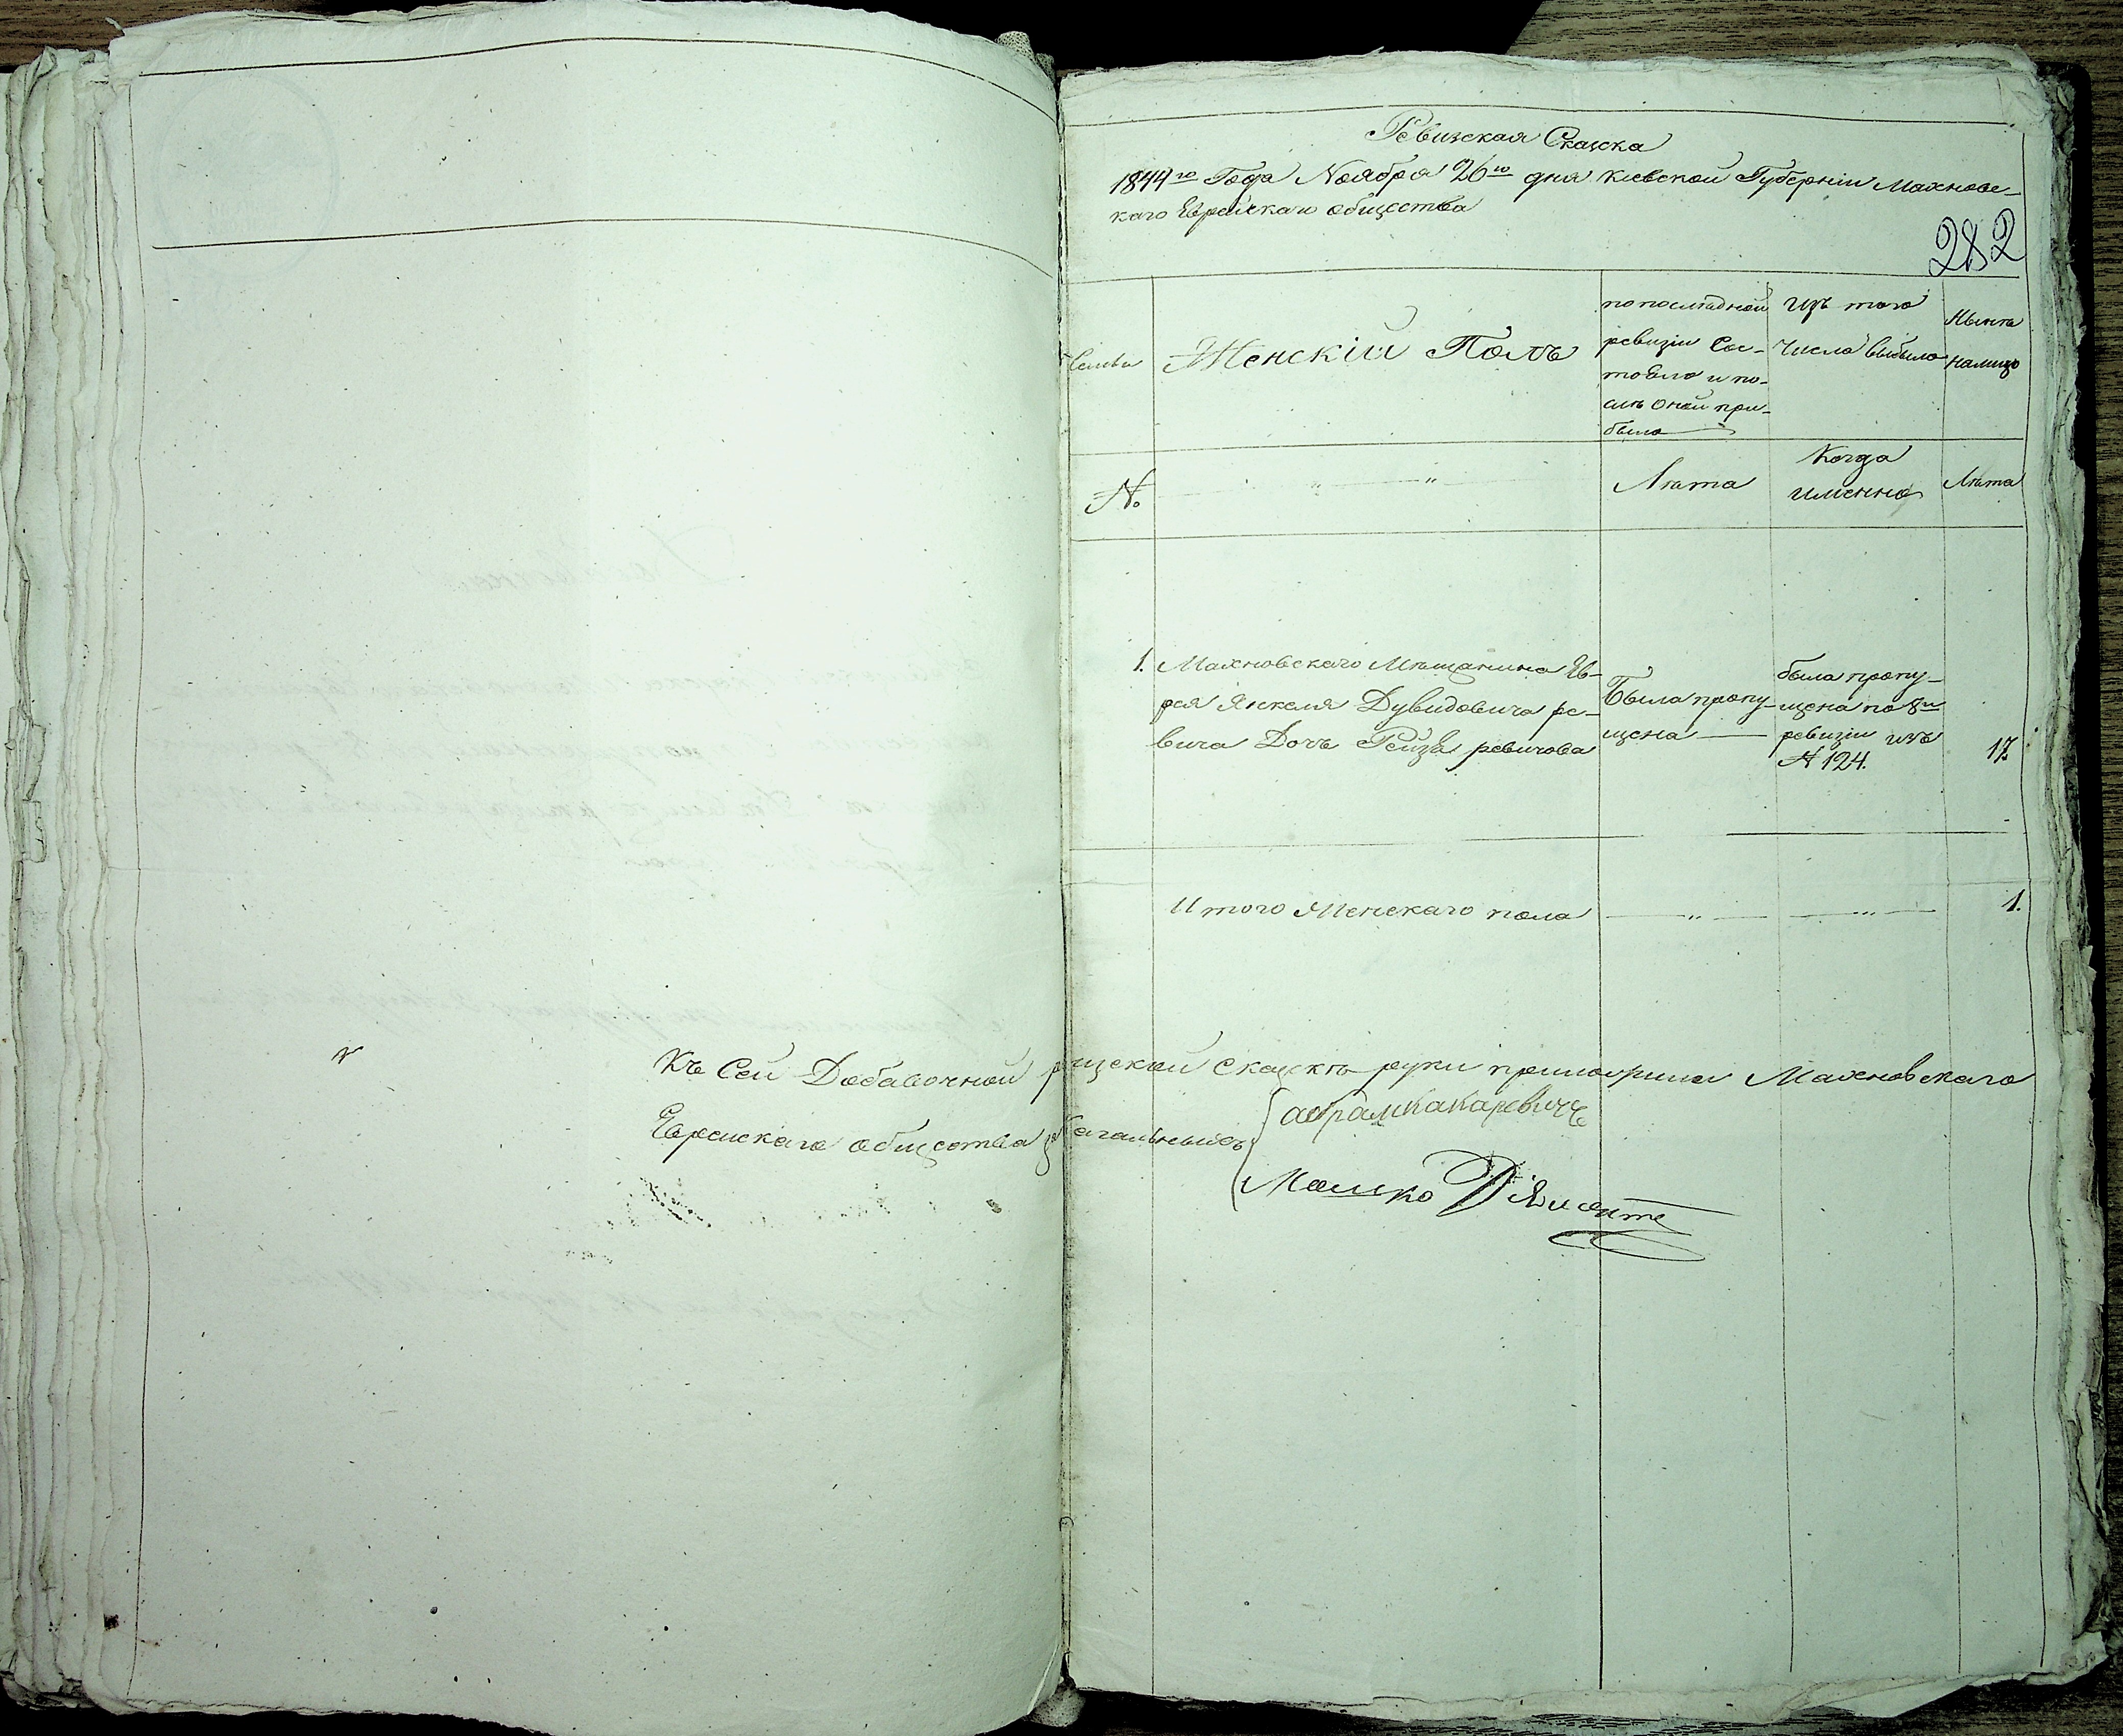 Ревизская Сказка
1844го Года Ноября 26го дня Киевской Губерніи Махновс-
каго Еврейскаго общества
282
Семьи
Женскій Полъ
по последней
ревизіи Сос-
тояло и по-
слѣ оной при-
было
Изъ того
числа выбыло
Нынѣ
налицо
№
Лѣта
Когда
именно
Лѣта
1. Махновскаго Мѣщанина Ев-
рея Янкеля Дувидовича ре-
вича Дочь Рейза ревичова
Была пропу-
щена
была пропу-
щена по 8й
ревизіи изъ
№ 124.
17.
Итого Женскаго пола
1.
Къ Сей Добавочной рвизской Сказкѣ руки приложили Махновскаго
Еврейскаго общества
Мошко